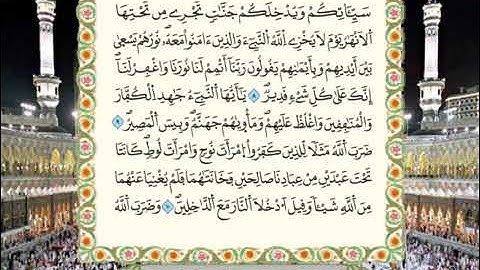 سَيِّـَٔاتِكُمْ وَيُدْخِلَكُمْ جَنَّٰتٖ تَجْرِے مِن تَحْتِهَا
اَ۬لَانْهَٰرُ يَوْمَ لَا يُخْزِے اِ۬للَّهُ اُ۬لنَّبِےٓءَ وَالذِينَ ءَامَنُواْ مَعَهُۥۖ نُورُهُمْ يَسْعَىٰ
بَيْنَ أَيْدِيهِمْ وَبِأَيْمَٰنِهِمْ يَقُولُونَ رَبَّنَآ أَتْمِمْ لَنَا نُورَنَا وَاغْفِرْ لَنَآۖ
إِنَّكَ عَلَىٰ كُلِّ شَےْءٖ قَدِيرٞۖ ٨ يَٰٓأَيُّهَا اَ۬لنَّبِےٓءُ جَٰهِدِ اِ۬لْكُفَّارَ
وَالْمُنَٰفِقِينَ وَاغْلُظْ عَلَيْهِمْ وَمَأْوَيٰهُمْ جَهَنَّمُۖ وَبِيسَ اَ۬لْمَصِيرُۖ ٩
ضَرَبَ اَ۬للَّهُ مَثَلاٗ لِّلذِينَ كَفَرُواْ اُ۪مْرَأَتَ نُوحٖ وَامْرَأَتَ لُوطٖۖ كَانَتَا
تَحْتَ عَبْدَيْنِ مِنْ عِبَادِنَا صَٰلِحَيْنِ فَخَانَتَٰهُمَا فَلَمْ يُغْنِيَا عَنْهُمَا
مِنَ اَ۬للَّهِ شَيْـٔاٗ وَقِيلَ اَ۟دْخُلَا اَ۬لنَّارَ مَعَ اَ۬لدَّٰخِلِينَۖ ١٠ وَضَرَبَ اَ۬للَّهُ